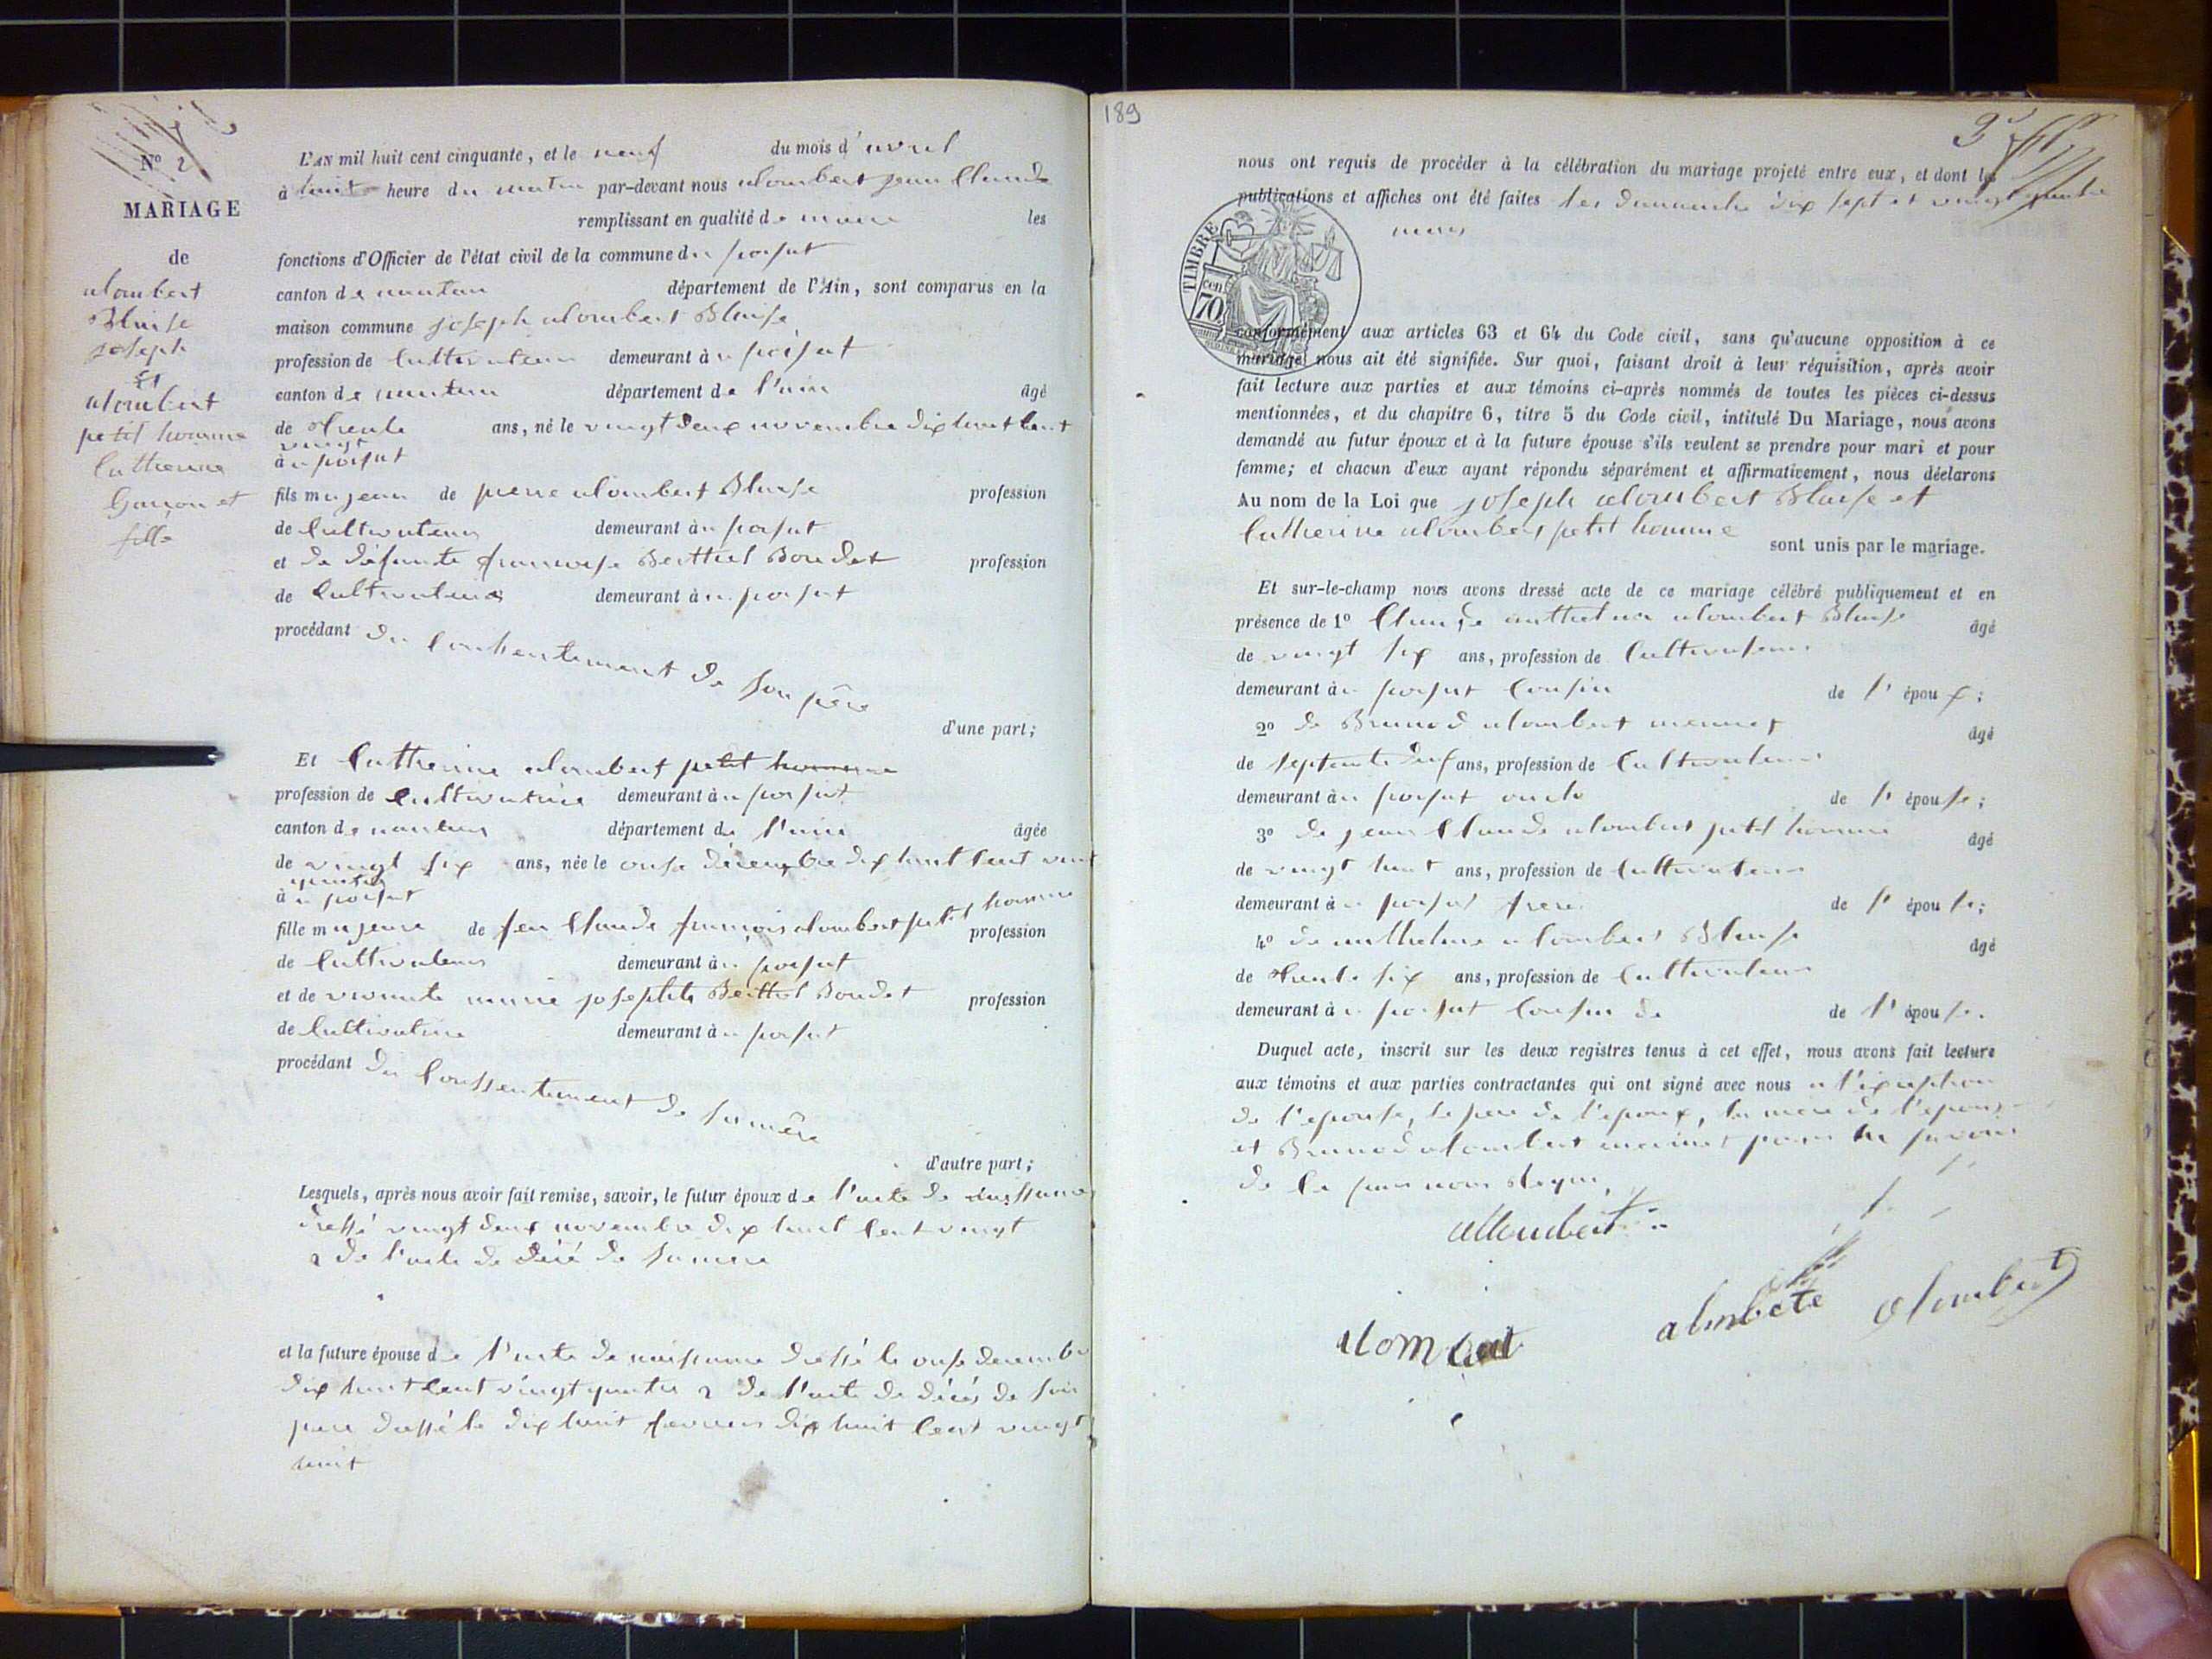 N° 2
MARIAGE
de
alombert
Blaise
joseph
Et
alombert
petit homme
Catherine
Garçon et
fille
L'AN mil huit cent cinquante, et le neuf du mois d'avril
à huit heure du matin par-devant nous alombert jean Claude
remplissant en qualité de maire les
fonctions d'Officier de l'état civil de la commune du poisat
canton de nantua département de l'Ain, sont comparus en la
maison commune joseph alombert Blaise
profession de Cultivateur demeurant à u poisat
canton de nantua département de l'ain âgé
de trente ans, né le vingt deux novembre dix huit Cent
vingt
à u poisat
fils majeur de pierre alombert Blaise profession
de Cultivateur demeurant à u poisat
et de défunte francoise Berthet Bondet profession
de Cultivateur demeurant à u poisat
procédant du Consentement de son père
d'une part;
Et Catherine alombert petit homme
profession de Cultivatrice demeurant à u poisat
canton de nantua département de l'ain âgée
de vingt six ans, née le onse décembre dix huit Cent vint
quatre
à u poisat
fille majeure de feu Claude françois alombert petit homme
profession
de Cultivateur demeurant à u poisat
et de vivante marie josephte Berthet Bondet profession
de Cultivatrice demeurant à u poisat
procédant du Conssentement de sa mère
d'autre part;
Lesquels, après nous avoir fait remise, savoir, le futur époux de l'acte de naissance
dressé vingt deux novembre dix huit Cent vingt
2 de l'acte de décé de sa mere
et la future épouse de l'acte de naissance dressé le onse decembre
dix huit Cent vingt quatre 2 de l'acte de décés de son
pere dressé le dix huit fevrier dix huit Cent vingt
huit
189
nous ont requis de procéder à la célébration du mariage projeté entre eux, et dont les
publications et affiches ont été faites les dimanche dix sept et vingt quatre
mars
TIMBRE
70 cen
conformément aux articles 63 et 64 du Code civil, sans qu'aucune opposition à ce
mariage nous ait été signifiée. Sur quoi, faisant droit à leur réquisition, après avoir
fait lecture aux parties et aux témoins ci-après nommés de toutes les pièces ci-dessus
mentionnées, et du chapitre 6, titre 5 du Code civil, intitulé Du Mariage, nous avons
demandé au futur époux et à la future épouse s'ils veulent se prendre pour mari et pour
femme; et chacun d'eux ayant répondu séparément et affirmativement, nous déclarons
Au nom de la Loi que joseph alombert Blaise et
Catherine alombert petit homme
sont unis par le mariage.
Et sur-le-champ nous avons dressé acte de ce mariage célébré publiquement et en
présence de 1° Claude anthelme alombert Blaise âgé
de vingt six ans, profession de Cultivateur
demeurant à u poisat Cousin de l'époux;
2° de Brunod alombert mermet âgé
de septante ans, profession de Cultivateur
demeurant à u poisat oncle de l'épouse;
3° de jean Claude alombert petit homme âgé
de vingt huit ans, profession de Cultivateur
demeurant à u poisat frere de l'épouse;
4° de anthelme alombert Blaise âgé
de trente six ans, profession de Cultivateur
demeurant à u poisat Cousin de de l'épouse.
Duquel acte, inscrit sur les deux registres tenus à cet effet, nous avons fait lecture
aux témoins et aux parties contractantes qui ont signé avec nous a l'exeption
de l'epouse, le pere de l'epoux, la mere de l'epouse
et Brunod alombert mermet pour ne savoir
de la part nous
alombert
alombert
alonbete
alombert